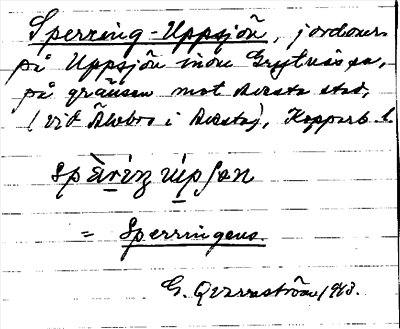 Sperring-Uppsjön, jordomr.
på Uppsjön inom Grytnäs sn,
på gränsen mot Avesta stad,
(vid Åvbro i Avesta), Kopparb. l.
= Sperringens.
G. Qvarnström 1963.